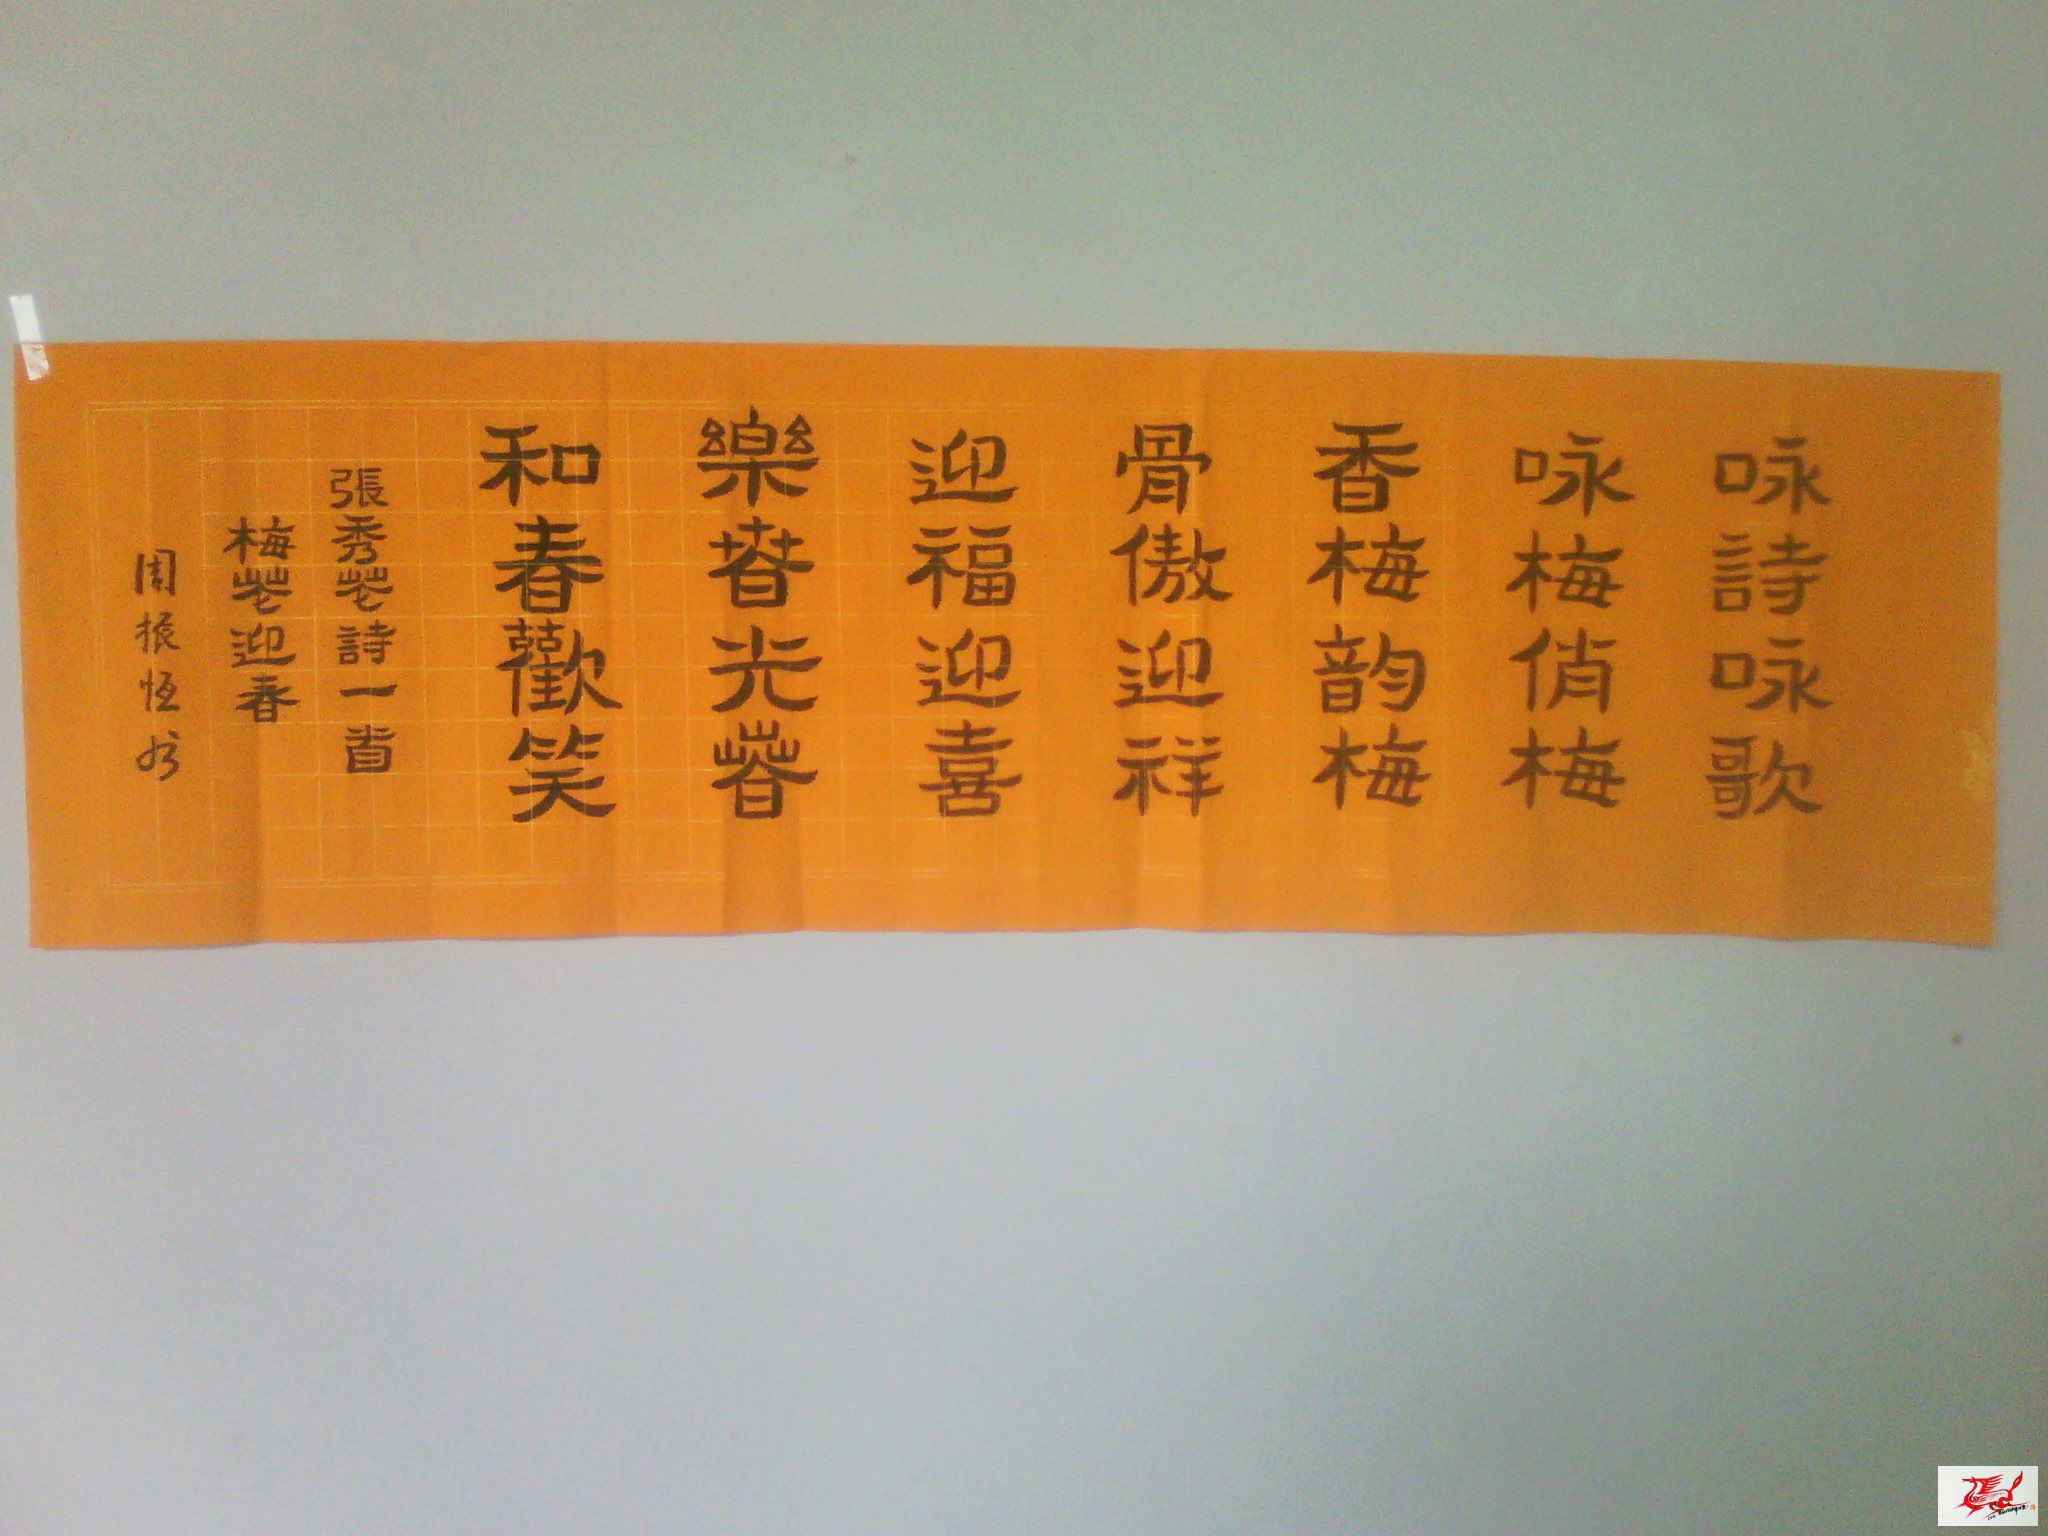 咏詩咏歌
咏梅俏梅
香梅韵梅
骨傲迎祥
迎福迎喜
樂春光春
和春歡笑
張秀花詩一首
梅花迎春
周振恆书